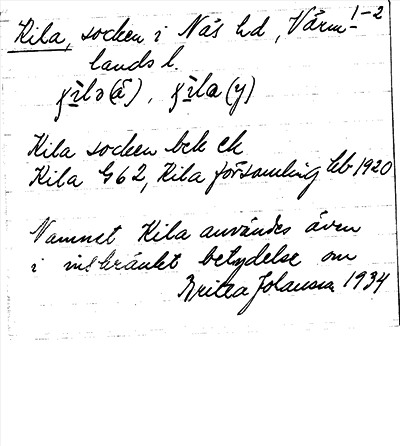 1-2
Kila, socken i Näs hd, Värm-
lands l.
(å), (y)
Kila socken bek ek
Kila G62, Kila församling hb 1920
Namnet Kila användes även
i inskränkt betydelse om
Johansson 1934